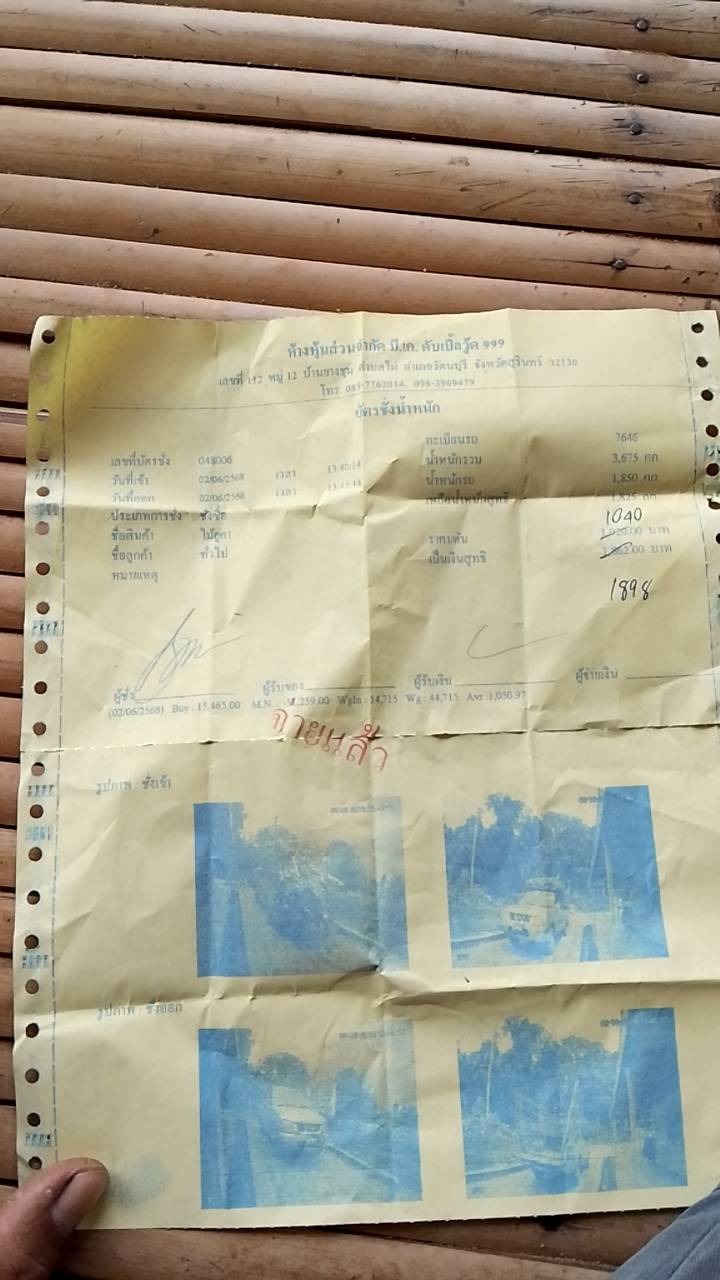 ห้างหุ้นส่วนจำกัด มี.เค. ดับเบิ้ลวู้ด 999
เลขที่ 112 หมู่ 12 บ้านยางชุม ตำบลไผ่ อำเภอรัตนบุรี จังหวัดสุรินทร์ 32130
โทร 085-7762014, 098-3969479
บัตรชั่งน้ำหนัก
ทะเบียนรถ 7646
เลขที่บัตรชั่ง : 048006 น้ำหนักรวม : 3,675 กก.
วันที่เข้า : 02/06/2568 เวลา 13:40:14 น้ำหนักรถ : 1,850 กก.
วันที่ออก : 02/06/2568 เวลา เหลือน้ำหนักสุทธิ 1,825 กก.
ประเภทการชั่ง : ชั่งซื้อ 1040
ชื่อสินค้า : ไม้ยูคา ราคา/ตัน : 1,020.00 บาท
ชื่อลูกค้า : ทั่วไป เป็นเงินสุทธิ : 1,862.00 บาท
หมายเหตุ
1898
ผู้ชั่ง ผู้รับของ ผู้รับเงิน ผู้จ่ายเงิน
(02/06/2568) Buy : 15,465.00 M.N. WgIn : 14,715 Wg : 44,715 Avr :1,050.97
จ่ายแล้ว
รูปภาพ : ชั่งเข้า
รูปภาพ : ชั่งออก